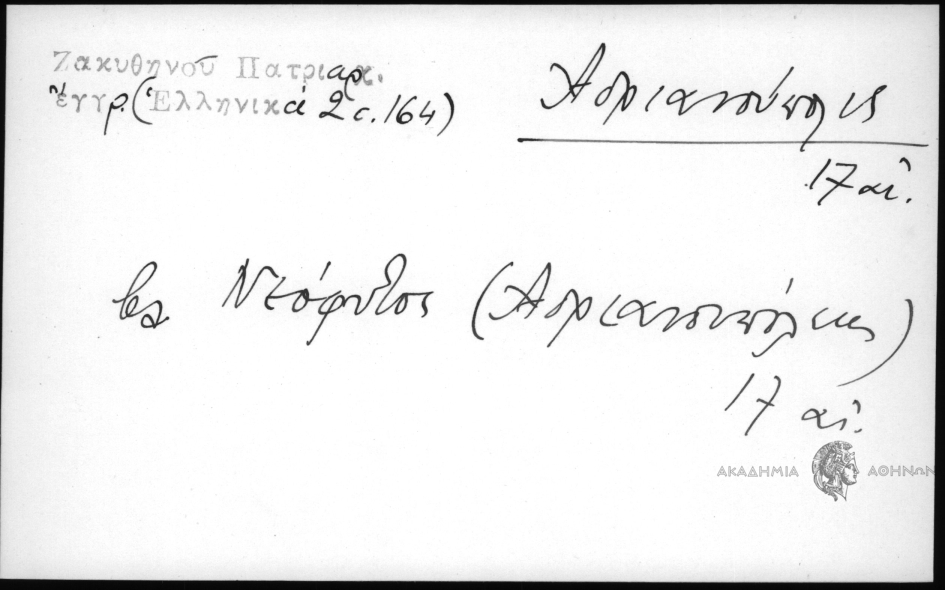 Ζακυθηνοῦ Πατριαρχ.
ἔγγρ. (Ἑλληνικά 2 σ. 164)
Ἀδριανούπολις
17 αἰ.
βλ. Νεόφυτος (Ἀδριανουπόλεως)
17 αἰ.
ΑΚΑΔΗΜΙΑ ΑΘΗΝΩΝ